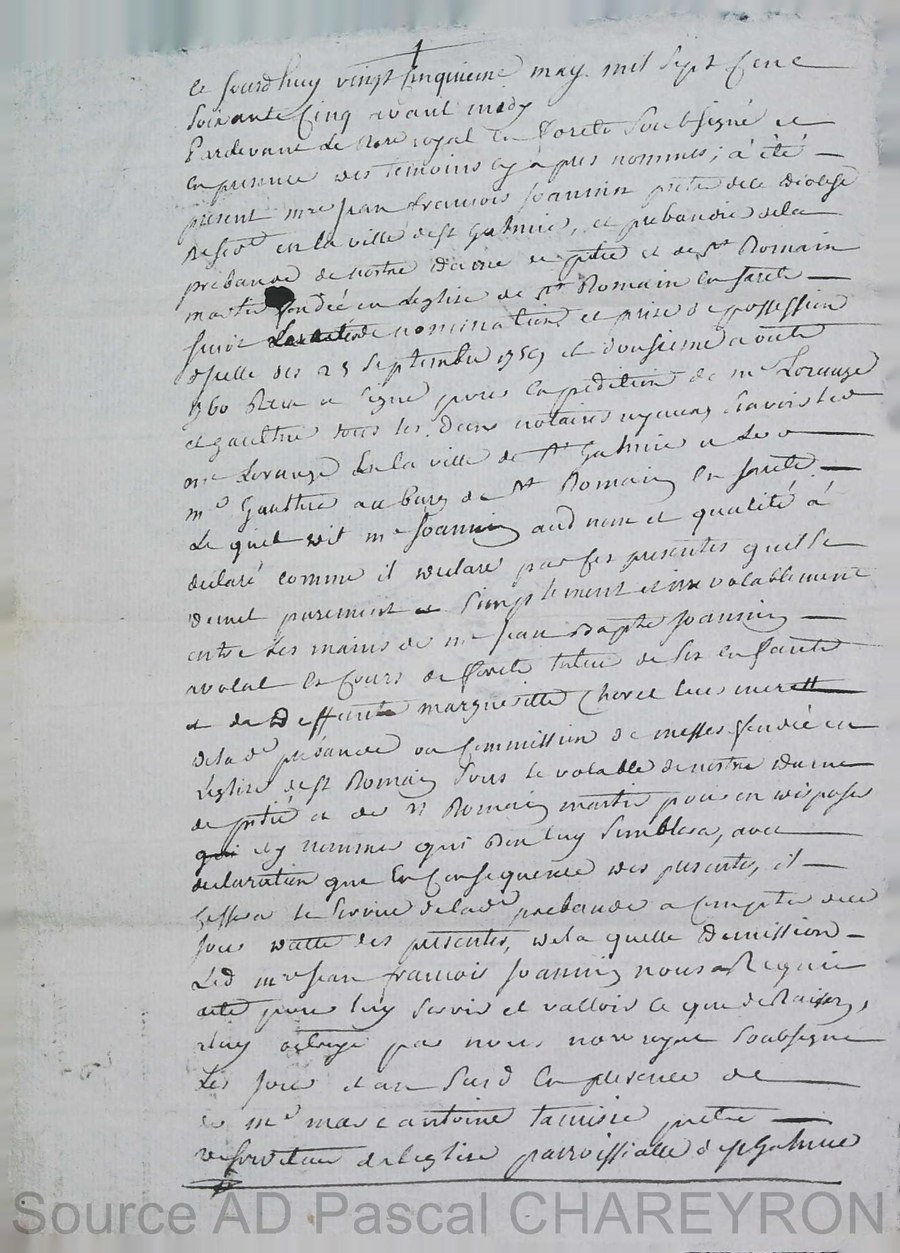 ce jourdhuy vingt cinquieme may mil sept cent
soixante cinq avant midy
Pardevant le Nore royal en forets soubsigné et
en presence des temoins cy apres nommés, a été
present mre Jean francois Joannin pretre de ce diocese
en la ville de st Galmier, et prebandier de la
prebande de nostre dame de pitié et de st Romain
martir fondée en Leglise de st Romain en Jarets
suivt de nomination et prise de possession
d'icelle des 25 septembre 1759 et dousieme aoust
1760 signé pour expedition de me Lorange
et gaultier tous les deux notaires royeaux scavoir led
me Lorange en la ville de st Galmier et led
me Gaultier au bourg de st Romain en Jarets
Le quel dit me Joannin aud nom et qualité à
declaré comme il declare par ces presentes quil se
demet purement et simplement et irrevocablement
entre les mains de me Jean Bapte Joannin
avocat en cours de forets tuteur de ses enfants
et de Deffunte margueritte Chovet leur mere
de lad prebande ou commission de messes fondée en
Leglise de st Romain sous le vocable de nostre dame
de pitié et de st Romain martir pour en disposer
et y nommer qui bon luy semblera, avec
declaration que en consequence des presentes, il
cessera le service de lad prebande a compter de ce
jour datte des presentes, de la quelle demission
Led mre Jean francois Joannin nous a Requis
acte pour luy servir et valloir ce que de Raison,
a luy octroyé par nous nore royal soubsigné
Les jour et an susd en presence de
mre marc antoine tamisier pretre
de leglise parroissialle de st Galmier
Source AD Pascal CHAREYRON